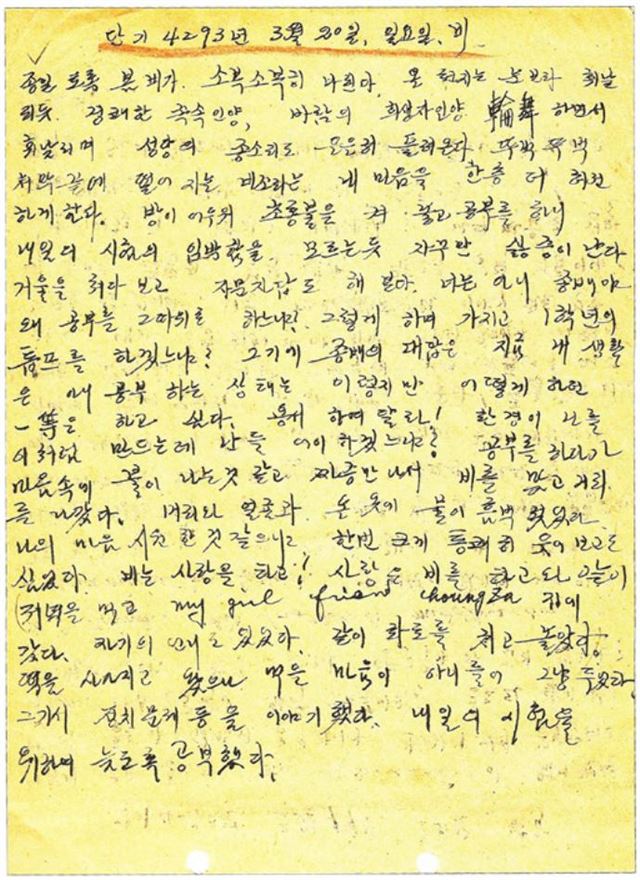 단기 4293년 3월 20일, 일요일, 비
종일토록 봄비가 소복소복히 나린다. 온 천지는 눈보라 휘날
리듯 경쾌한 족속인양, 바람의 희생자인양 輪舞 하면서
휘날리며 성당의 종소리도 은은히 들려온다 뚜벅 뚜벅
처막끝에 떨어지는 비소리는 내 마음을 한층 더 허전
하게 한다. 방이 어두워 초롱불을 켜 놓고 공부를 하니
내일의 시험의 임박했을 모르는듯 자꾸만 싫증이 난다
거울을 쳐다 보고 자문자답도 해 본다. 너는 아니 종배야
왜 공부를 그따위로 하느냐? 그렇게 하여 가지고 1학년의
톱프를 하겠느냐? 그기에 종배의 대답은 지금 내 생활
은 내 공부 하는 상태는 이렇지만 어떻게 하던
一等은 하고 싶다. 용서 하여 달라! 환경이 나를
이처럼 만드는데 난들 어이 하겠느냐? 공부를 하다가
마음속에 불이 나는것 같고 짜증만 나서 비를 맞고 거리
를 나갔다. 머리와 얼굴과 온 옷에 물이 흠벅 젖었다
나의 마음 시원한것 같으니 한번 크게 통쾌히 웃어 보고도
싶었다. 비는 사랑을 타고! 사랑은 비를 타고 와 오늘이
(저녁을 먹고 my girl frien choungza 집에
갔다. 자기의 언니도 있었다. 같이 화토를 치고 놀았다.
떡을 사가지고 왔으나 먹을 마음이 아니들어 그냥 두었다
그기서 정치문제 등을 이야기 했다. 내일의 시험을
위하여 늦도록 공부했다.